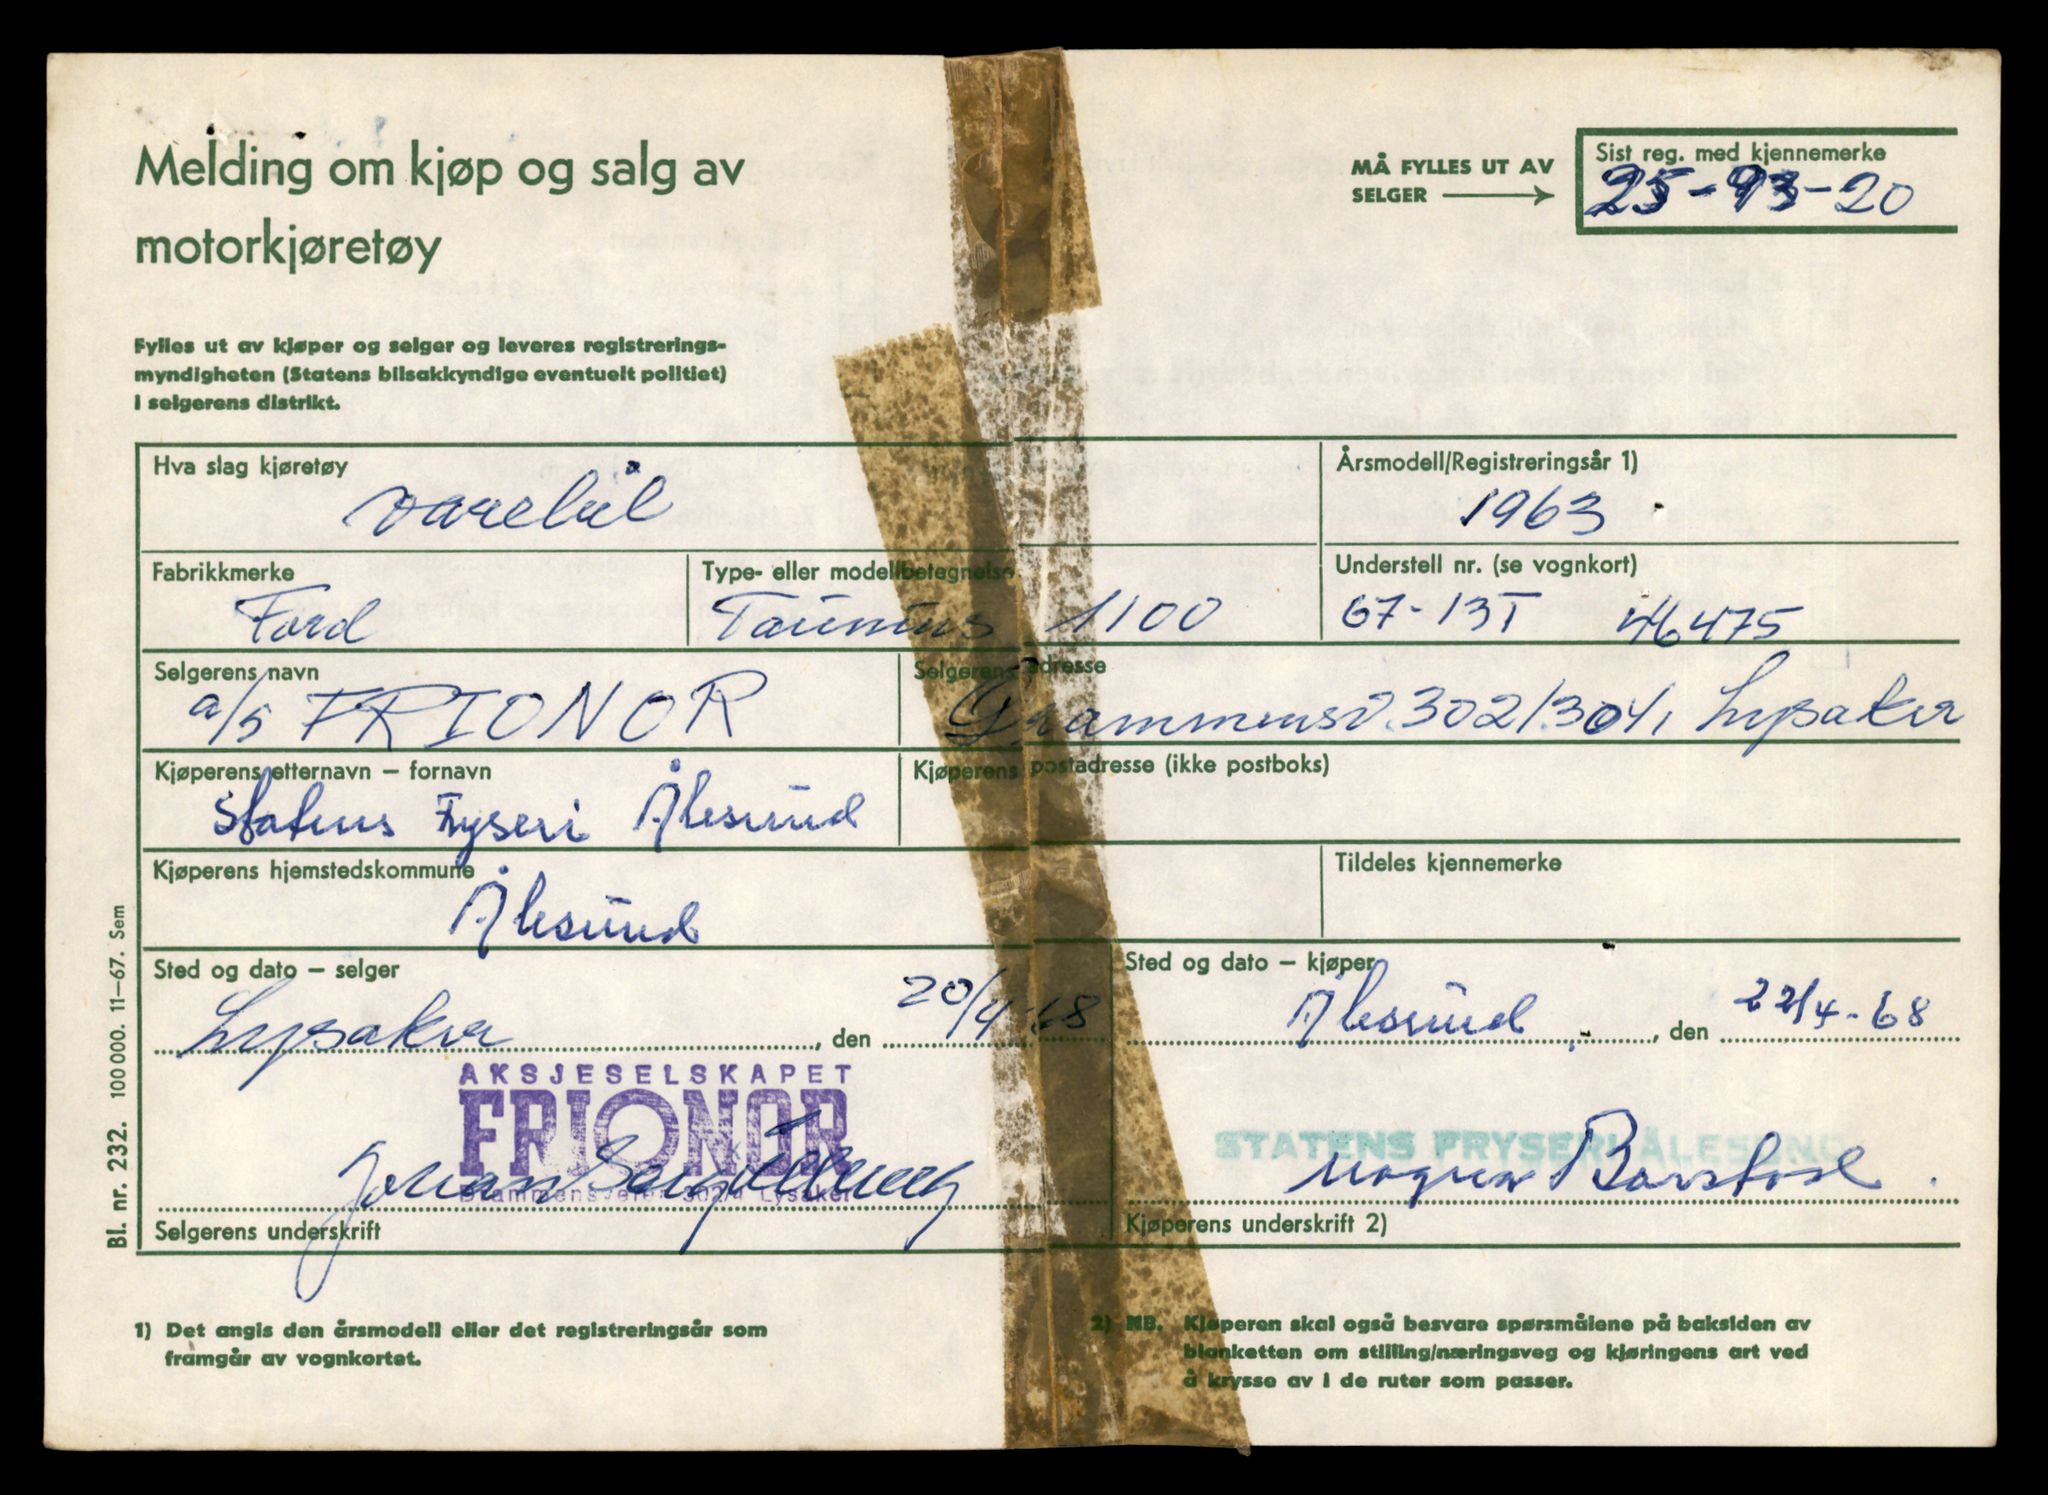 Melding om kjøp og salg av
motorkjøretøy
MÅ FYLLES UT AV
SELGER
Sist reg. med kjennemerke
25-93-20
Fylles ut av kjøper og selger og leveres registrerings-
myndigheten (Statens bilsakkyndige eventuelt politiet)
i selgerens distrikt.
Hva slag kjøretøy
varebil
Årsmodell/Registreringsår 1)
1963
Fabrikkmerke
Ford
Type- eller modellbetegnelse
Taunus 1100
Understell nr. (se vognkort)
67-13T 46475
Selgerens navn
a/s FRIONOR
Selgerens adresse
Drammensv. 302/304, Lysaker
Kjøperens etternavn – fornavn
Statens Fryseri Ålesund
Kjøperens postadresse (ikke postboks)
Kjøperens hjemstedskommune
Ålesund
Tildeles kjennemerke
Sted og dato – selger
Lysaker, den 20/4-68
Sted og dato – kjøper
Ålesund, den 22/4-68
AKSJESELSKAPET
FRIONOR
Drammensveien 302/4 Lysaker
Johan
STATENS FRYSERI ÅLESUND
Selgerens underskrift
Kjøperens underskrift 2)
Bl. nr. 232. 100 000. 11–67. Sem
1) Det angis den årsmodell eller det registreringsår som
framgår av vognkortet.
2) NB. Kjøperen skal også besvare spørsmålene på baksiden av
blanketten om stilling/næringsveg og kjøringens art ved
å krysse av i de ruter som passer.